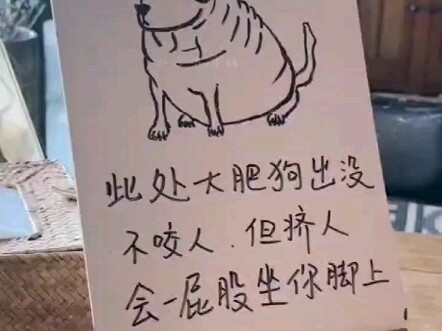 此处大肥狗出没
不咬人.但挤人
会一屁股坐你脚上